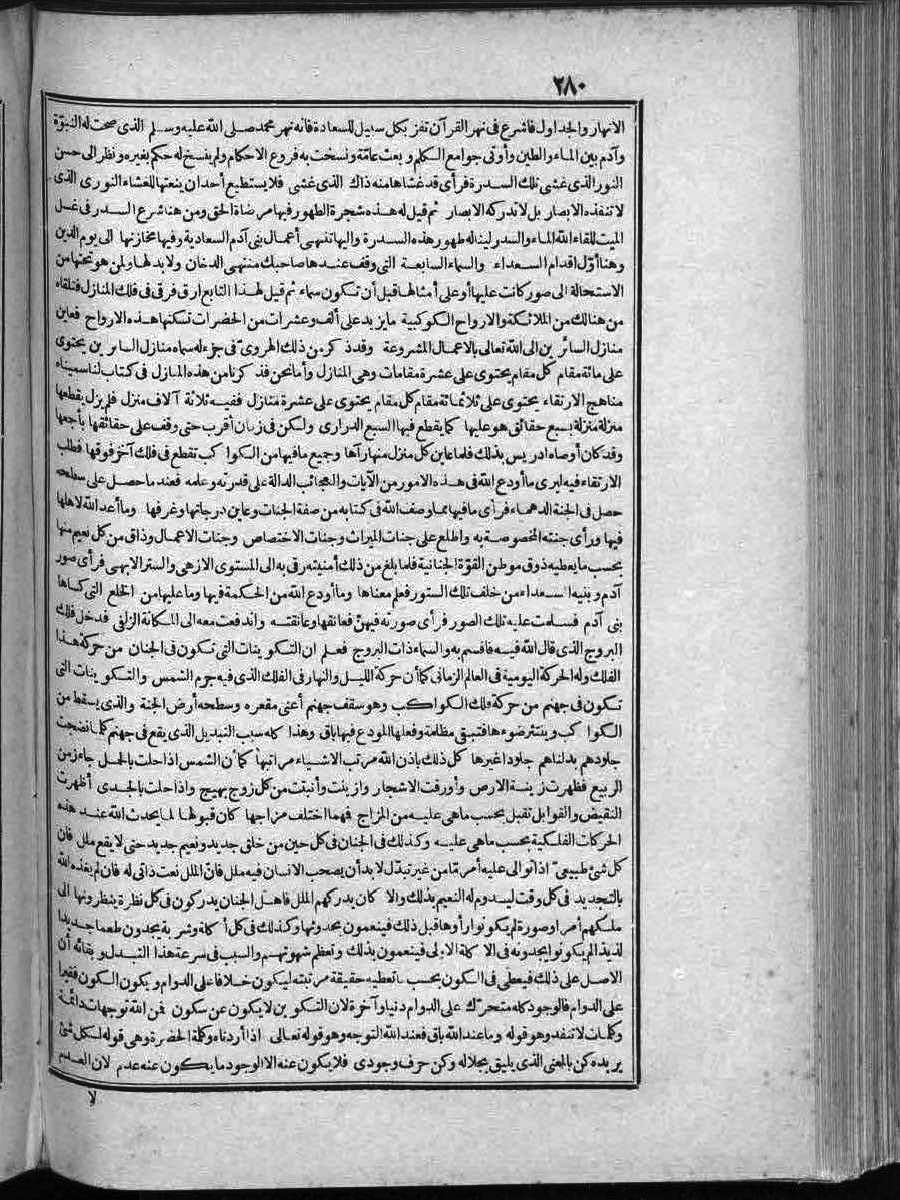 ٢٨٠
الانهار والجداول فاشرع في نهر القرآن تفز بكل سبيل للسعادة فانه نهر محمد صلى الله عليه وسلم الذي صحت له النبوّة
وآدم بين الماء والطين وأوتى جوامع الكلم وبعث عامّة ونسخت به فروع الاحكام ولم ينسخ له حكم بغيره ونظر الى حسن
النور الذي غشى تلك السدرة فرأى قد غشاها منه ذاك الذي غشى فلا يستطيع أحد ان ينعتها للغشاء النوري الذي
لا تنفذه الابصار بل لا تدركه الابصار ثم قيل له هذه شجرة الطهور فيها مرضاة الحق ومن هنا شرع السدر في غسل
الميت للقاء الله الماء والسدر ليناله طهور هذه السدرة واليها تنتهى أعمال بنى آدم السعادية وفيها مخازنها الى يوم الدين
وهنا أوّل اقدام السعداء والسماء السابعة التي وقف عندها صاحبك منتهى الدخان ولا بد لها ولمن هو تحتها من
الاستحالة الى صور كانت عليها أو على أمثالها قبل أن تكون سماء ثم قيل لهذا التابع ارق فرقى في فلك المنازل فتلقاه
من هنالك من الملائكة والارواح الكوكبية ما يزيد على ألف وعشرات من الحضرات تسكنها هذه الارواح فعاين
منازل السائرين الى الله تعالى بالاعمال المشروعة وقد ذكر من ذلك الهروىّ في جزء له سماه منازل السائرين يحتوى
على مائة مقام كل مقام يحتوى على عشرة مقامات وهي المنازل وأما نحن فذكرنا من هذه المنازل في كتاب لنا سميناه
مناهج الارتقاء يحتوى على ثلاثمائة مقام كل مقام يحتوى على عشرة منازل ففيه ثلاثة آلاف منزل فلم يزل يقطعها
منزلة منزلة بسبع حقائق هو عليها كما يقطع فيها السبع الدرارى ولكن في زمان أقرب حتى وقف على حقائقها بأجمعها
وقد كان أوصاه ادريس بذلك فلما عاين كل منزل منها رآها وجميع ما فيها من الكواكب تقطع في فلك آخر فوقها فطلب
الارتقاء فيه ليرى ما أودع الله في هذه الامور من الآيات والعجائب الدالة على قدرته وعلمه فعند ما حصل على سطحه
حصل في الجنة الدهماء فرأى ما فيها مما وصف الله في كتابه من صفة الجنات وعاين درجاتها وغرفها وما أعد الله لاهلها
فيها ورأى جنته المخصوصة به واطلع على جنات الميراث وجنات الاختصاص وجنات الاعمال وذاق من كل نعيم منها
بحسب ما يعطيه ذوق موطن القوّة الجنانية فلما بلغ من ذلك أمنيته رقى به الى المستوى الازهى والستر الابهى فرأى صور
آدم وبنيه السعداء من خلف تلك الستور فعلم معناها وما أودع الله من الحكمة فيها وما عليها من الخلع التي كساها
بنى آدم فسلمت عليه تلك الصور فرأى صورته فيهنّ فعانقها وعانقته واندفعت معه الى المكانة الزلفى فدخل فلك
البروج الذي قال الله فيه فاقسم به والسماء ذات البروج فعلم ان التكوينات التي تكون في الجنان من حركة هذا
الفلك وله الحركة اليومية في العالم الزمانى كما أن حركة الليل والنهار في الفلك الذي فيه جرم الشمس والتكوينات التي
تكون في جهنم من حركة فلك الكواكب وهو سقف جهنم أعنى مقعره وسطحه أرض الجنة والذي يسقط من
الكواكب وينتثر ضوءها فتبقى مظلمة وفعلها المودع فيها باق وهذا كله سبب التبديل الذي يقع في جهنم كلما نضجت
جلودهم بدلناهم جلودا غيرها كل ذلك باذن الله مرتب الاشياء مراتبها كما أن الشمس اذا حلت بالحمل جاء زمن
الربيع فظهرت زينة الارض وأورقت الاشجار وازينت وأنبتت من كل زوج بهيج واذا حلت بالجدى أظهرت
النقيض والقوابل تقبل بحسب ما هي عليه من المزاج فهما اختلف مزاجها كان قبولها لما يحدث الله عند هذه
الحركات الفلكية بحسب ما هي عليه وكذلك في الجنان في كل حين من خلق جديد ونعيم جديد حتى لا يقع ملل فان
كل شئ طبيعىّ اذا توالى عليه أمر مّا من غير تبدّل لا بد أن يصحب الانسان فيه ملل فانّ الملل نعت ذاتى له فان لم يغذه الله
بالتجديد في كل وقت ليدوم له النعيم بذلك والا كان يدركهم الملل فاهل الجنان يدركون في كل نظرة ينظرونها الى
ملكهم أمرا وصورة لم يكونوا رأوها قبل ذلك فينعمون بحدوثها وكذلك في كل أكلة وشربة يجدون طعما جديدا
لذيذا لم يكونوا يجدونه في الاكلة الاولى فينعمون بذلك وتعظم شهوتهم والسبب في سرعة هذا التبدل وبقائه أن
الاصل على ذلك فيعطى في الكون بحسب ما تعطيه حقيقة مرتبته ليكون خلاقا على الدوام ويكون الكون فقيرا
على الدوام فالوجود كله متحرّك على الدوام دنيا وآخرة لان التكوين لا يكون عن سكون فمن الله توجهات دائمة
وكلمات لا تنفد وهو قوله وما عند الله باق فعند الله التوجه وهو قوله تعالى اذا أردناه وكلمة الحضرة وهي قوله لكل شئ
يريده كن بالمعنى الذي يليق بجلاله وكن حرف وجودى فلا يكون عنه الا الوجود ما يكون عنه عدم لان العدم
لا